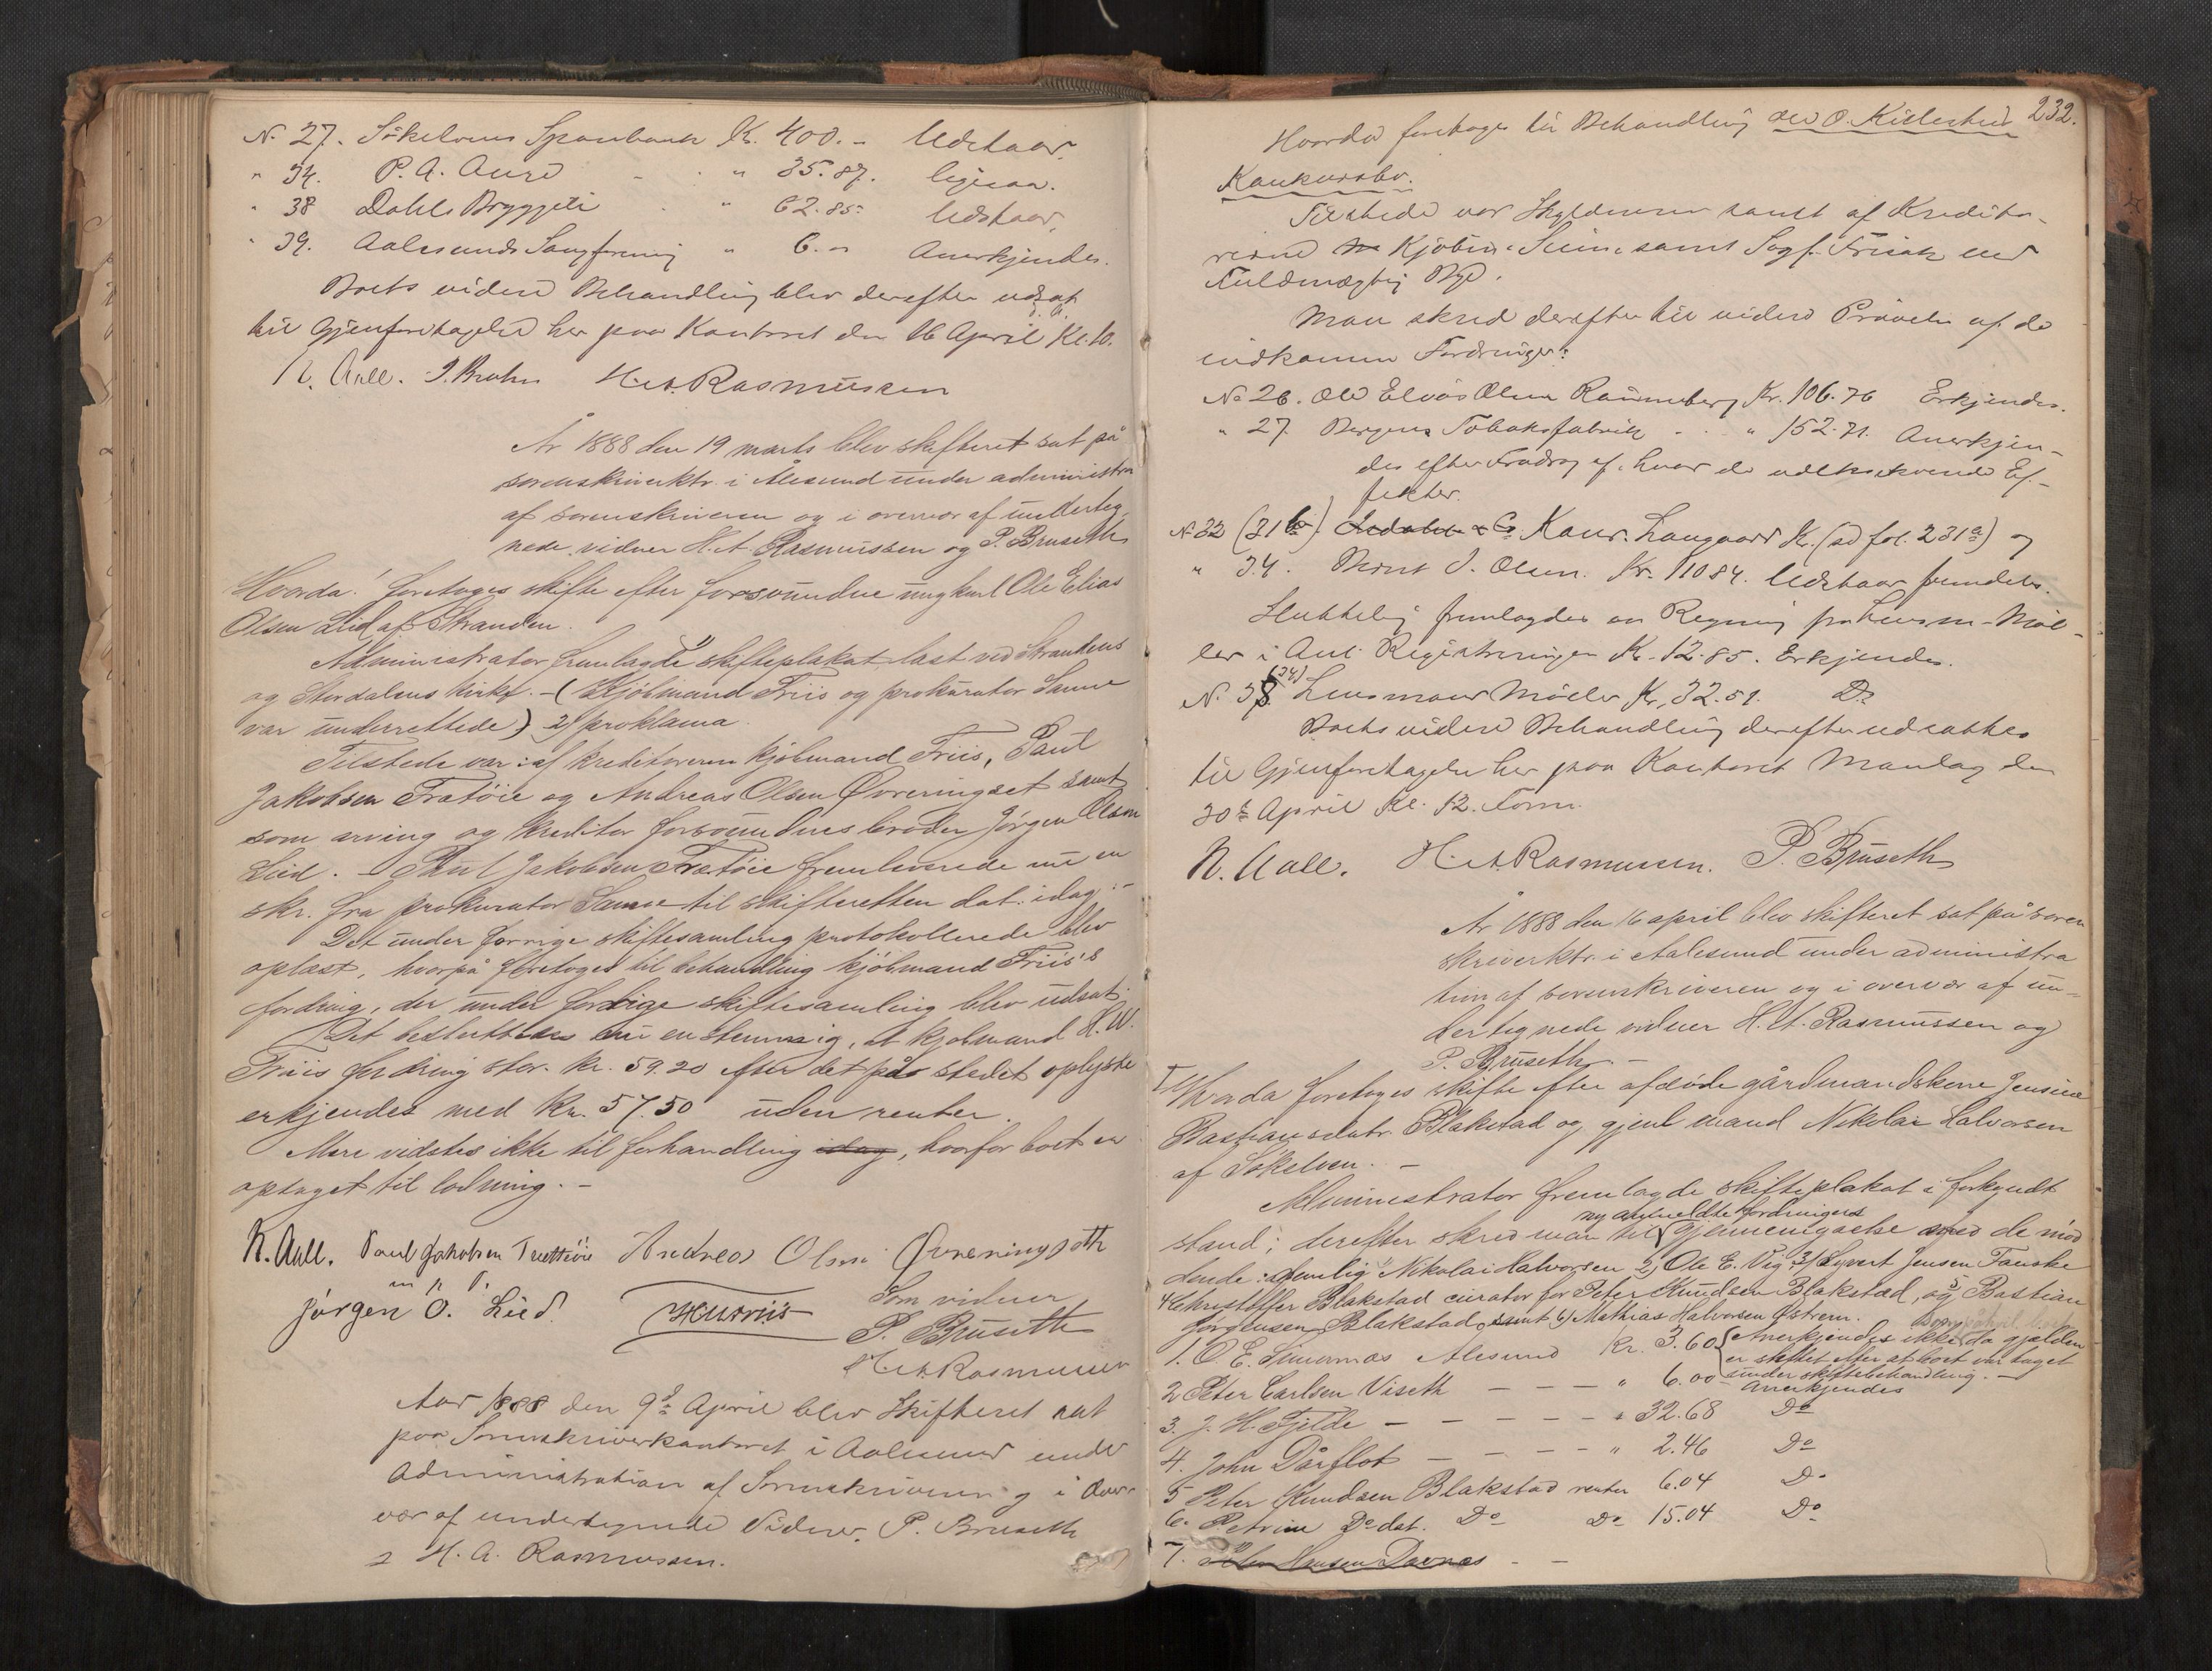 N. 27. Sökelvens Sparebank Kr. 400.- Udstaar.
" 34. P. A. Aure - - " 35.87. ligesaa.
" 38 Dahls Bryggeri - " 62.85 Udstaar,
" 39. Aalesunds Sangforening " 6.- Anerkjendes.
Boets videre Behandling blev derefter udsat
til Gjenforetagelse her paa Kontoret den 16 April d. A. Kl. 10.
N. Aall. P. Bruseth H. A. Rasmussen
År 1888 den 19 marts blev skifteret sat på
sorenskriverktr. i Ålesund under administra
af sorenskriveren og i overvær af underteg-
nede vidner H. A. Rasmussen og P. Bruseth
Hvorda! foretoges skifte efter forsvundne ungkarl Ole Elias
Olsen Lied af Stranden.
Administrator fremlagde 1) skifteplakat, læst ved Strandens
og Stordalens kirke. - (Kjöbmand Friis og prokurator Sanne
var underrettede) 2) proklama.
Tilstede var: af kreditorerne kjöbmand Friis, Paul
Jakobsen Trætöie og Andreas Olsen Øvreningset samt
som arving og kreditor forsvundnes broder Jörgen Olsen
Lied. - Paul Jakobsen Trætöie fremleverede nu en
skr. fra prokurator Sanne til skifteretten dat. idag. -
Det under forrige skiftesamling protokollerede blev
oplæst, hvorpå foretoges til behandling kjöbmand Friis's
fordring, der under forrige skiftesamling blev udsat.
Det besluttedes nu enstemmig, at kjöbmand H. W.
Friis fordring stor kr. 59.20 efter det på stedet oplyste
erkjendes med Kr. 57.50 uden renter.
Mere vidstes ikke til forhandling idag, hvorfor boet er
optaget til lodning. -
N. Aall. Paul Jakobsen Trættöie Andreas Olsen Øvreningseth
m p P.
Jörgen O. Lied. HWFriis Som vidner
P. Bruseth
H. A. Rasmussen
Aar 1888 den 9de April blev Skifteret sat
paa Sorenskriverkontoret i Aalesund under
Administration af Sorenskriveren og i Over-
vær af undertegnede Vidner P. Bruseth
& H. A. Rasmussen.
232.
Hvorda foretages til Behandling Ole O. Killestads
Konkursbo.
Tilstede var Skyldneren samt af Kredito-
rerne Kjöbm. Stein samt Sagf. Frisak ved
Fuldmægtig Bye.
Man skred derefter til videre Prövelse af de
indkomne Fordringer:
No 26. Ole Elias Olsen Rönneberg Kr. 106.76 Erkjendes.
" 27. Bergens Tobaksfabrik - - " 152.71. Anerkjen-
des efter Fradrag af hvad de udleverende Ef-
fekter.
N. 32 (31 b) Kons. Langaard Kr. (ad fol. 231a) og
" 34. Bernt J. Olsen. Kr. 110 84. Udstaar fremdeles.
Sluttelig fremlagdes en Regning fra Lensm. Möl-
ler i Anl. Registreringen Kr. 12.85. Erkjendes.
N. 38 (34) Lensmand Möller Kr. 32.51. Do
Boets videre Behandling derefter udsattes
til Gjenforetagelse her paa Kontoret Mandag den
30te April Kl. 12. Form.
N. Aall. H. A. Rasmussen. P. Bruseth
År 1888 den 16 april blev skifteret sat på soren
skriverktr. i Aalesund under administra
tion af sorenskriveren og i overvær af un-
dertegnede vidner H. A. Rasmussen og
P. Bruseth -
Hvorda foretoges skifte efter afdöde gårdmandskone Jensine
Bastiansdatr. Blakstad og gjenl. mand Nikolai Halvorsen
af Sökelven. -
Administrator fremlagde skifteplakat i forkyndt
stand; derefter skred man til gjennemgaaelse ny anmeldte fordringer med de möd
dende: Nemlig Nikolai Halvorsen 2) Ole E. Vig 3) Syvert Jensen Fauske
4 Christoffer Blakstad curator for Peter Knudsen Blakstad, og 5) Bastian
Jørgensen Blakstad, samt 6) Mathias Halvorsen Østrem.
1. O. E. Simernæs Ålesund Kr. 3.60 { Anerkjendes ikke da gjælden
er stiftet efter at boet var taget
under skiftebehandling. -
2 Peter Carlsen Viseth - - - " 6.00 Anerkjendes
3. J. H. Fjelde - - - - - " 32.68 Do
4. John Dårflot - - - - " 2.46 Do
5 Peter Knudsen Blakstad renter 6.04 Do
6. Petrine Do dat. Do Do 15.04 Do
7. Hansen Davnæs - -